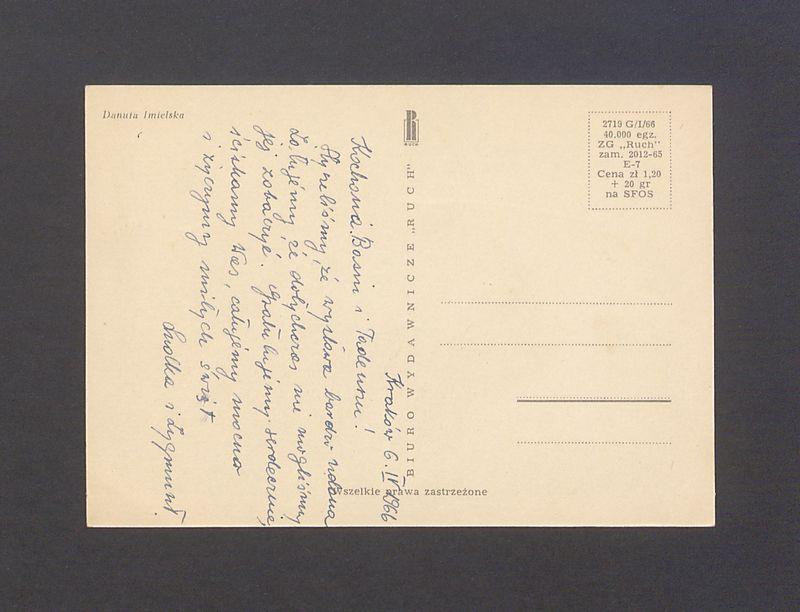 Danuta Imielska
RUCH
BIURO WYDAWNICZE „RUCH"
2719 G/I/66
40.000 egz.
ZG „Ruch"
zam. 2012-65
E-7
Cena zł 1,20
+ 20 gr
na SFOS
Wszelkie prawa zastrzeżone
Kraków 6.IV 1966
Kochana Basiu i Tadeuszu!
Słyszeliśmy, że wystawa bardzo udana
Żałujemy, że dotychczas nie mogliśmy
jej zobaczyć. Gratulujemy serdecznie,
ściskamy Was, całujemy mocno
i życzymy miłych świąt
i Zygmunt.